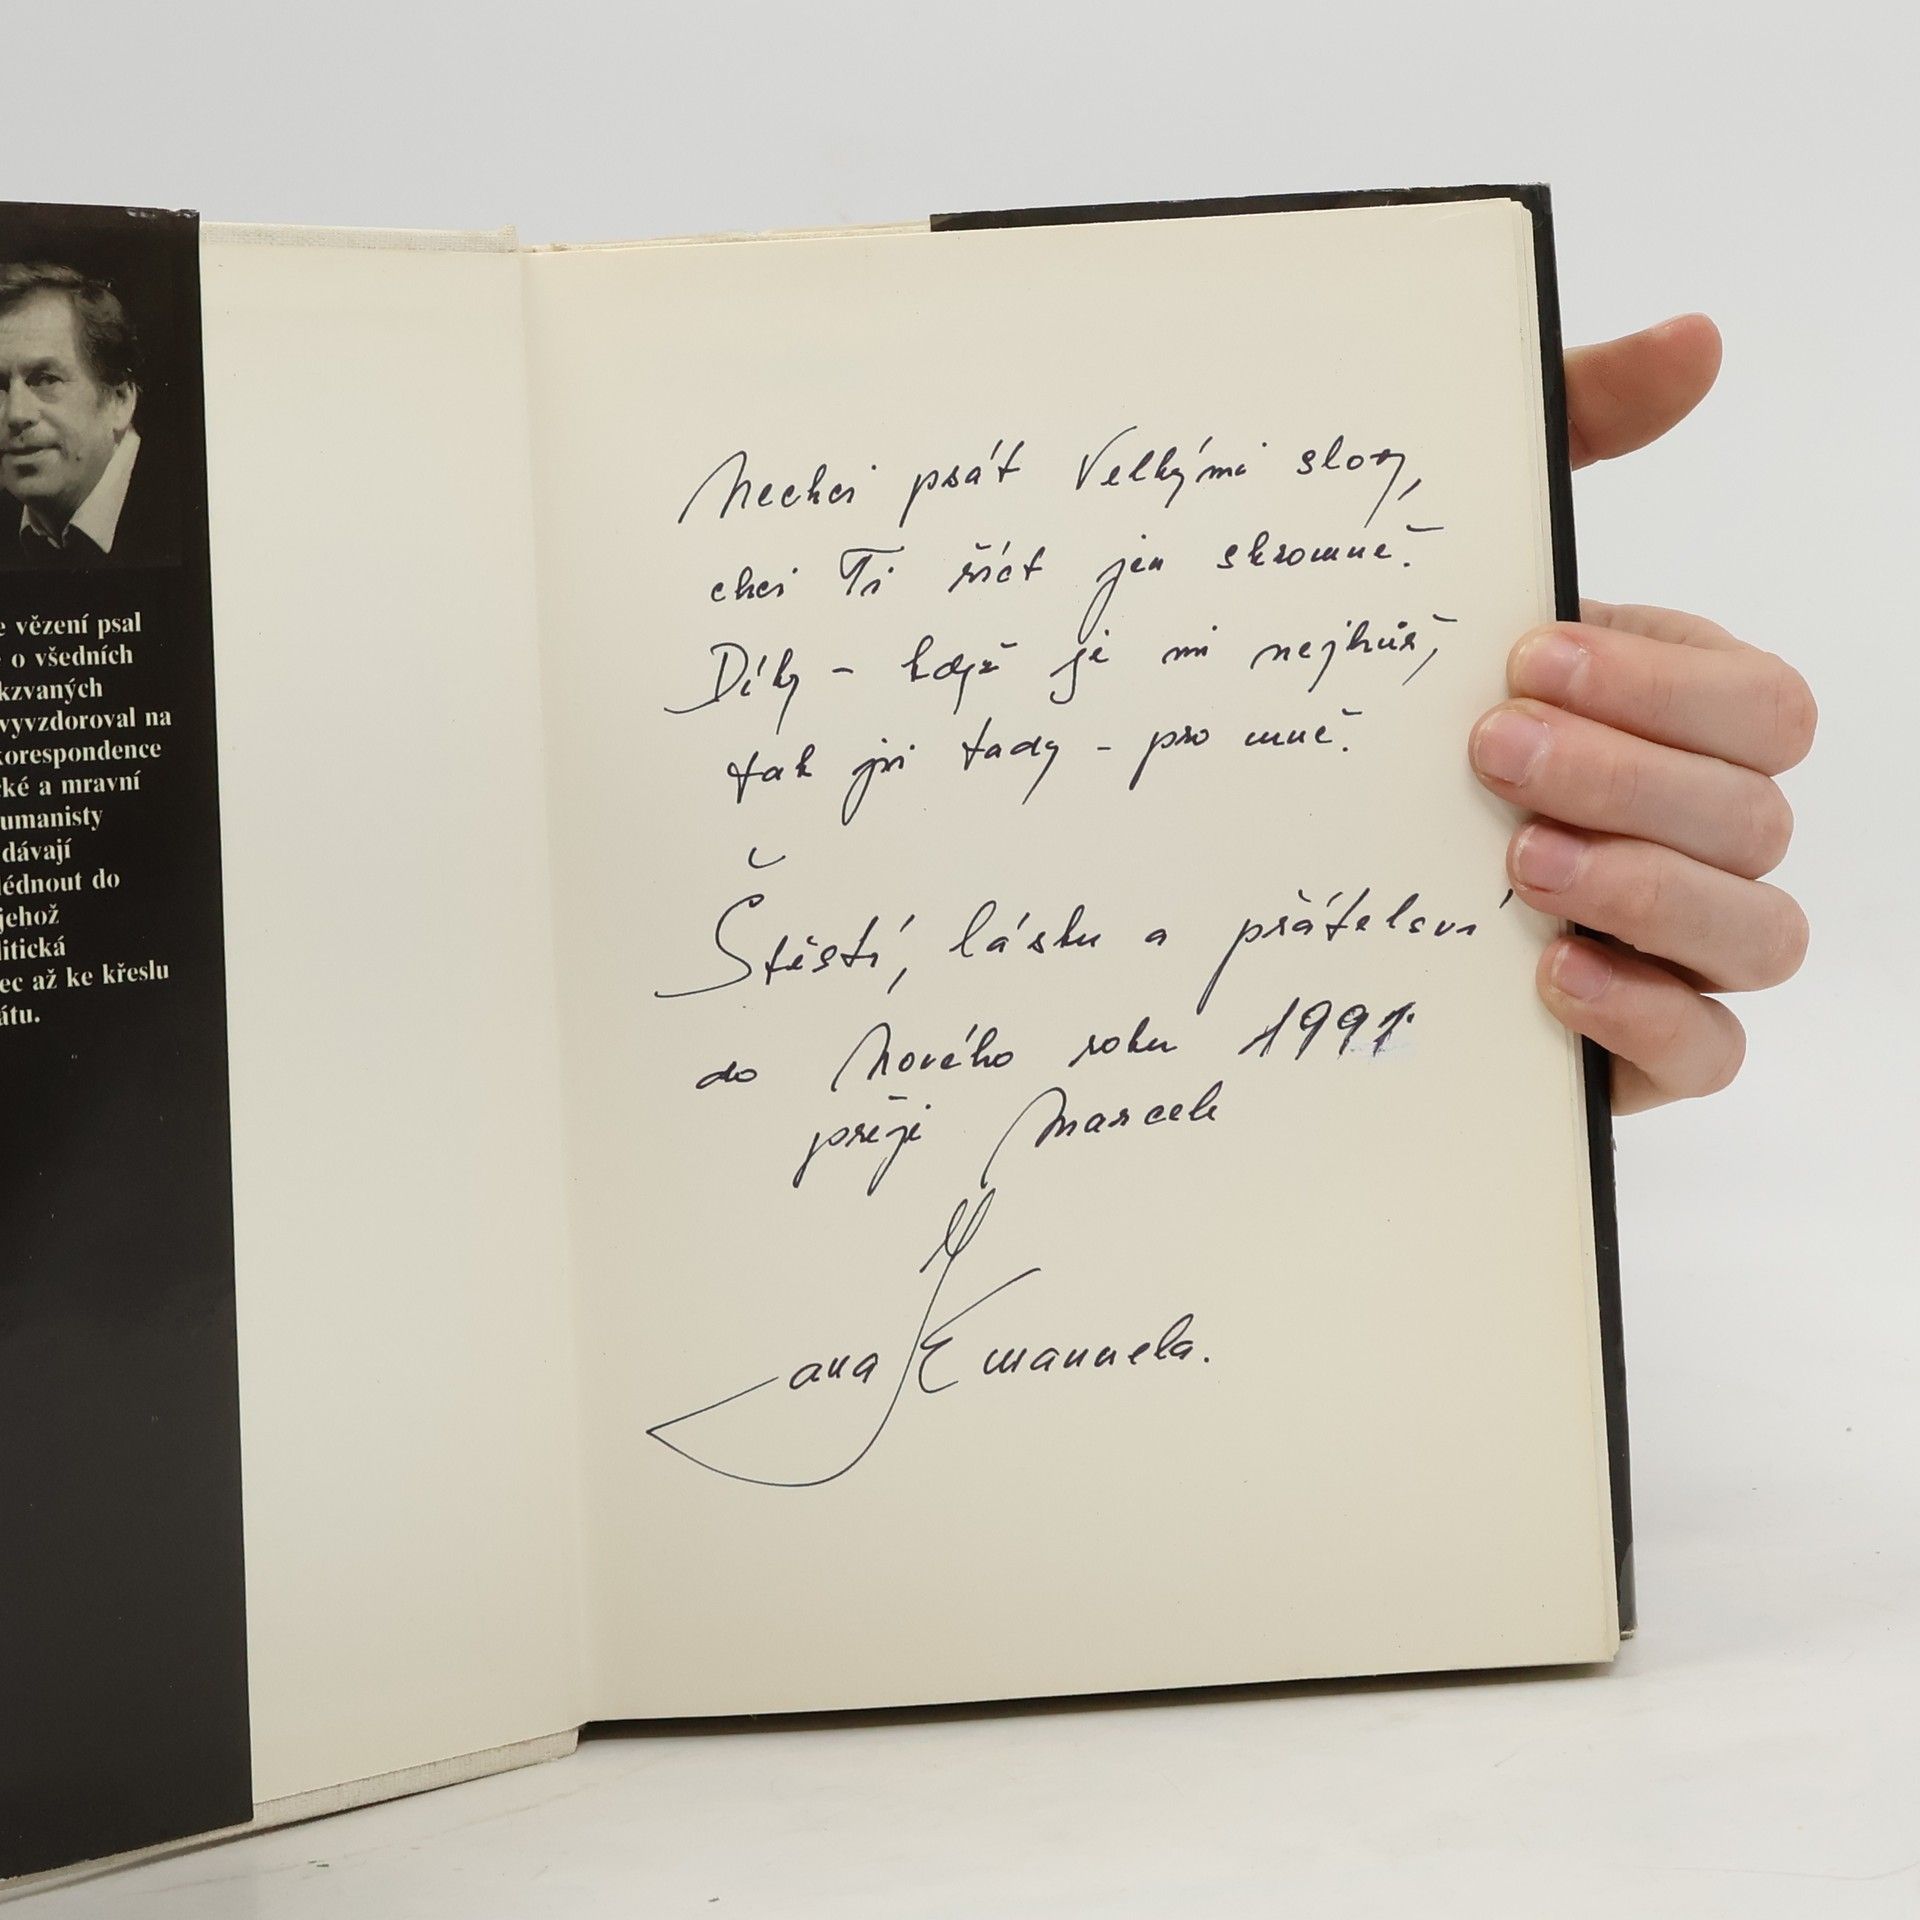 e vězení psal
o všedních
kzvaných
vyvzdoroval na
korespondence
ké a mravní
umanisty
dávají
lédnout do
jehož
litická
ec až ke křeslu
átu.
Nechci psát Velkými slovy,
chci Ti říct jen skromně.
Díky - když je mi nejhůř,
tak jsi tady - pro mně.
Štěstí, lásku a přátelsví
do Nového roku 1991.
přeji Marcele
Jana Emanuela.